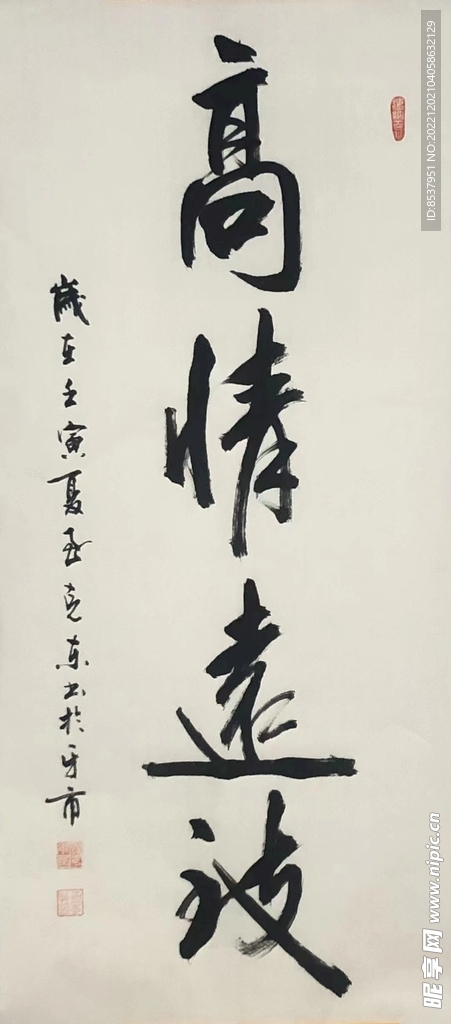 高情遠致
歲在壬寅夏至克東書於
ID:8537951 NO:20221202104058632129
昵享网 www.nipic.cn